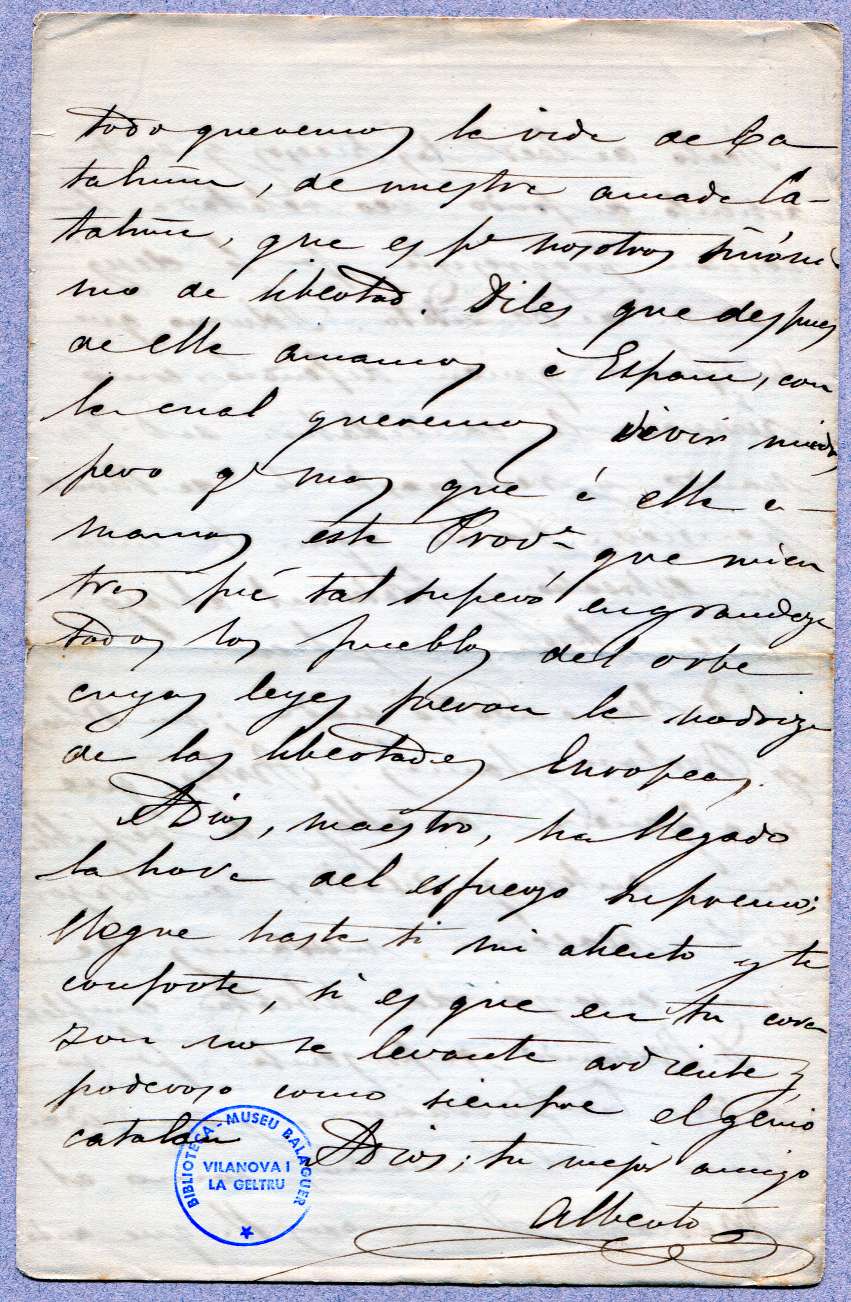 todo queremos la vida de Ca
taluña, de nuestra amada Ca-
taluña, que es pª nosotros sinóni
mo de libertad. Diles que despues
de ella amamos á España, con
la cual queremos vivir unidos
pero qᵉ mas que á ella a-
mamos esta Provª, que mien
tras fué tal superó en grandeza
todos los pueblos del orbe
cuyas leyes fueron la nodriza
de las libertades Europeas.
ADios, maestro, ha llegado
la hora del esfuerzo supremo;
llegue hasta ti mi aliento y te
conforte, si es que en tu cora
zon no se levante ardiente y
poderoso como siempre el génio
catalan ADios; tu mejor amigo
Alberto
BIBLIOTECA - MUSEU BALAGUER
VILANOVA I
LA GELTRU